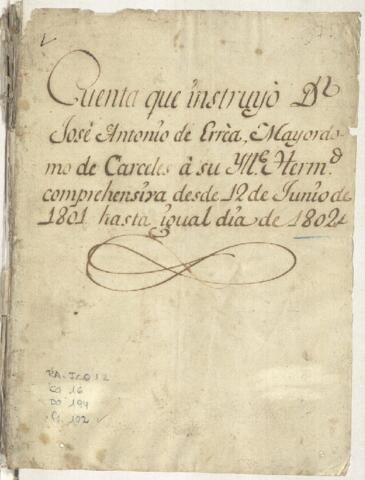 Cuenta que instruyò Dn
Josè Antonio de Errèa, Mayordo-
mo de Carceles à su Yllе Hermd
comprehensiva desde 12 de Junio de
1801 hasta igual dia de 1802
CO 16
DO 194
102